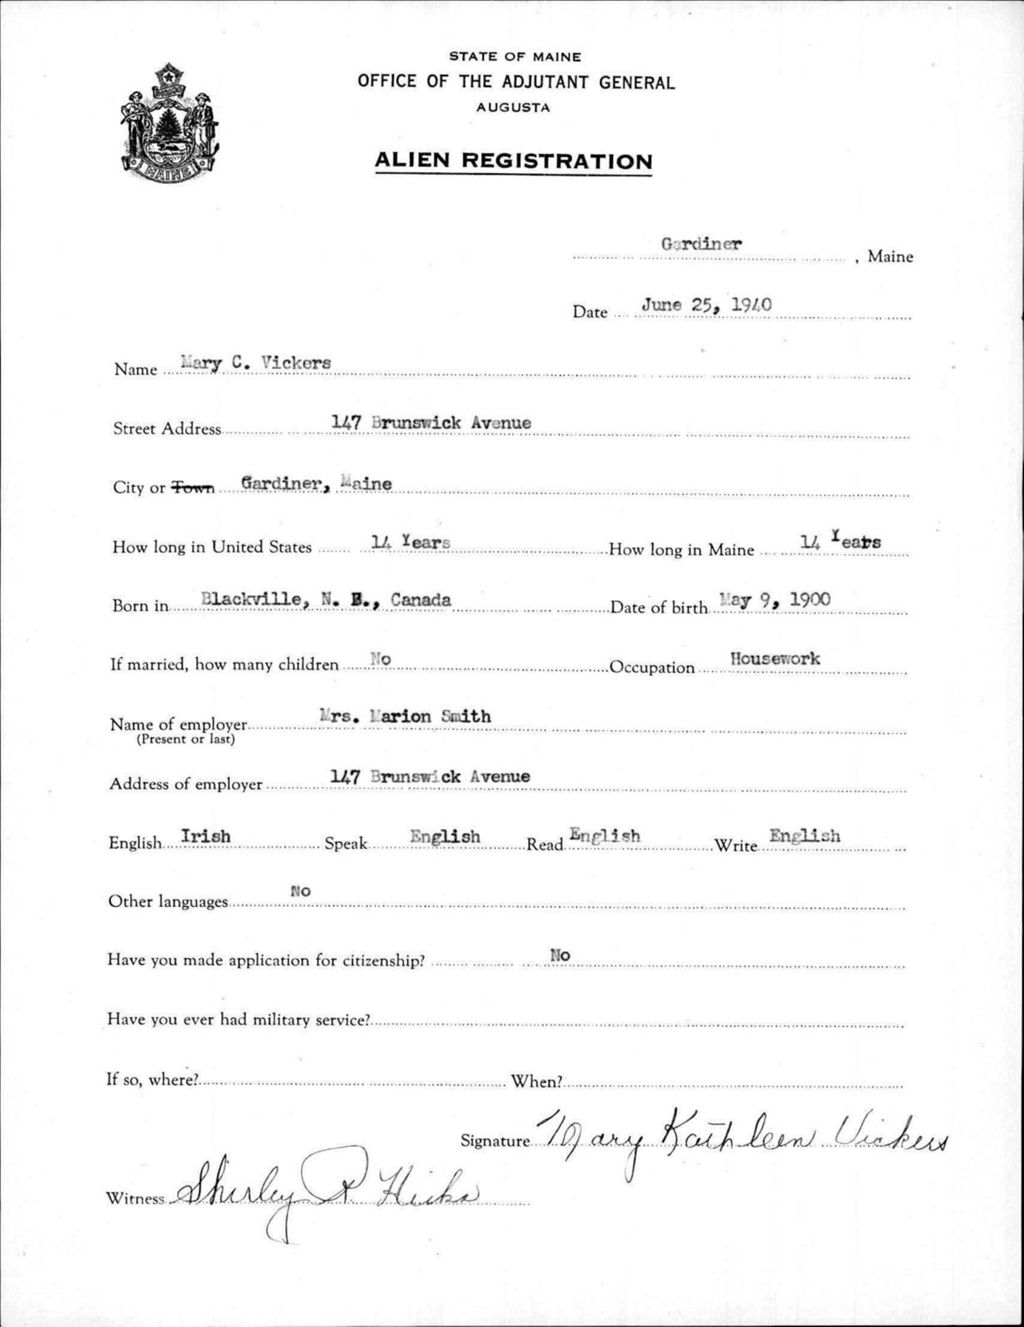 STATE OF MAINE
OFFICE OF THE ADJUTANT GENERAL
AUGUSTA
ALIEN REGISTRATION
MAINE
Gardiner, Maine
Date June 25, 1940
Name Mary C. Vickers
Street Address 147 Brunswick Avenue
City or Town Gardiner, Maine
How long in United States 14 Years How long in Maine 14 Years
Born in Blackville, N. B., Canada Date of birth May 9, 1900
If married, how many children No Occupation Housework
Name of employer Mrs. Marion Smith
(Present or last)
Address of employer 147 Brunswick Avenue
English Irish Speak English Read English Write English
Other languages No
Have you made application for citizenship? No
Have you ever had military service?
If so, where? When?
Signature Mary Kathleen Vickers
Witness Shirley R Hicks